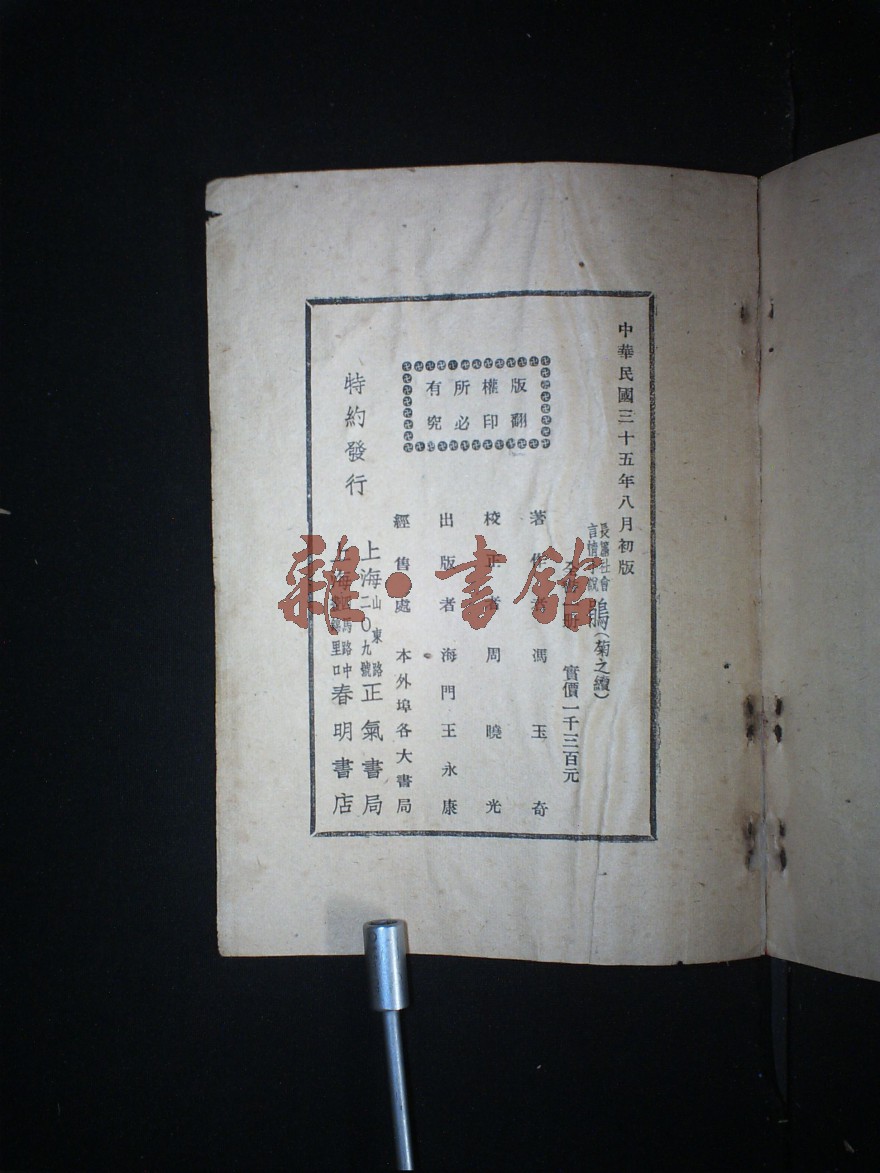 中華民國三十五年八月初版
長篇社會
言情小說
鵑(菊之續)
全書一册 實價一千三百元
著作者 馮玉奇
校正者 周曉光
出版者 海門王永康
經售處 本外埠各大書局
版權所有
翻印必究
特約發行
上海山東路二〇九號正氣書局
上海四馬路中 里口春明書店
雜·書館